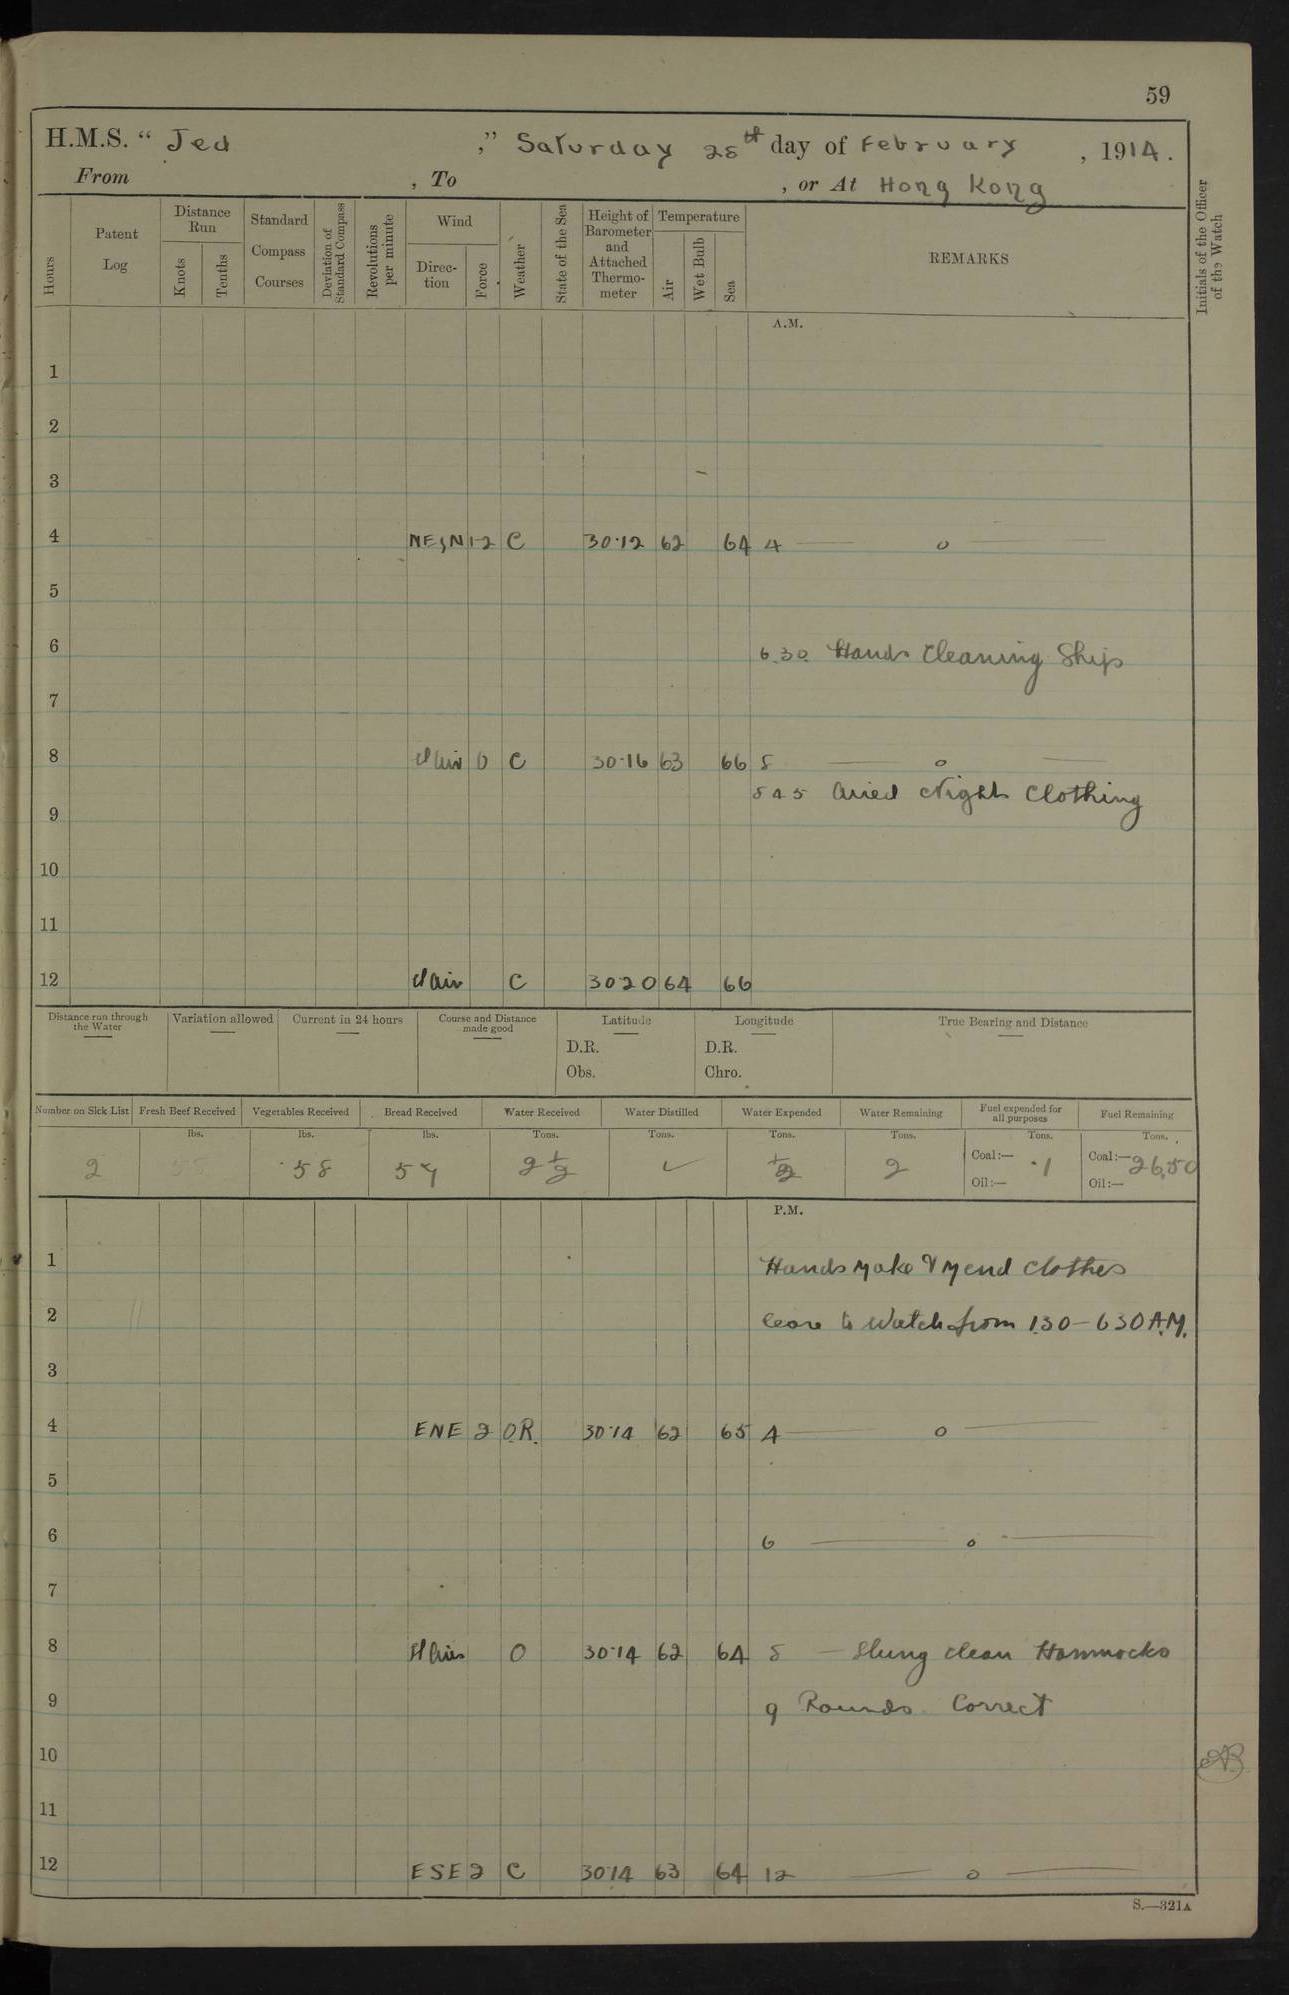 59
H.M.S. “ Jed ,” Saturday 28th day of February , 1914 .
From , To , or At Hong Kong
Hours
Patent Log
Distance Run
Knots
Tenths
Standard Compass Courses
Deviation of Standard Compass
Revolutions per minute
Wind
Direction
Force
Weather
State of the Sea
Height of Barometer and Attached Thermometer
Temperature
Air
Wet Bulb
Sea
REMARKS
Initials of the Officer of the Watch
A.M.
1
2
3
4 1-2 C 30·12 62 64 4 — o —
5
6 6.30 Hands Cleaning Ship
7
8 0 C 30·16 63 66 8 — o —
845 Aired Night Clothing
9
10
11
12 C 3020 64 66
Distance run through the Water
Variation allowed
Current in 24 hours
Course and Distance made good
Latitude
Longitude
True Bearing and Distance
D.R. D.R.
Obs. Chro.
Number on Sick List Fresh Beef Received Vegetables Received Bread Received Water Received Water Distilled Water Expended Water Remaining Fuel expended for all purposes Fuel Remaining
lbs. lbs. lbs. Tons. Tons. Tons. Tons. Tons. Tons.
2 58 57 2½ ✓ ½ 2 Coal:— ·1 Coal:— 26.50
Oil:— Oil:—
P.M.
1 Hands Make & Mend Clothes
2 to Watch from 1.30 – 630 A.M.
3
4 ENE 2 O.R. 30·14 62 65 4 — o —
5
6 6 — o —
7
8 O 30·14 62 64 8 — Slung clean Hammocks
9 9 Rounds Correct
10
11
12 ESE 2 C 3014 63 64 12 — o —
S.—321A